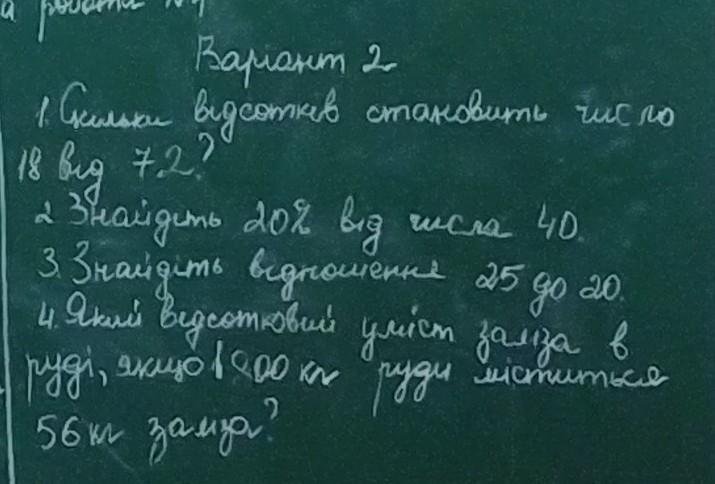 а робота №1
Варіант 2
1. Скільки відсотків становить число
18 від 72?
2. Знайдіть 20% від числа 40.
3. Знайдіть відношення 25 до 20.
4. Який відсотковий уміст заліза в
руді, якщо кг руди міститься
56 кг заліза?